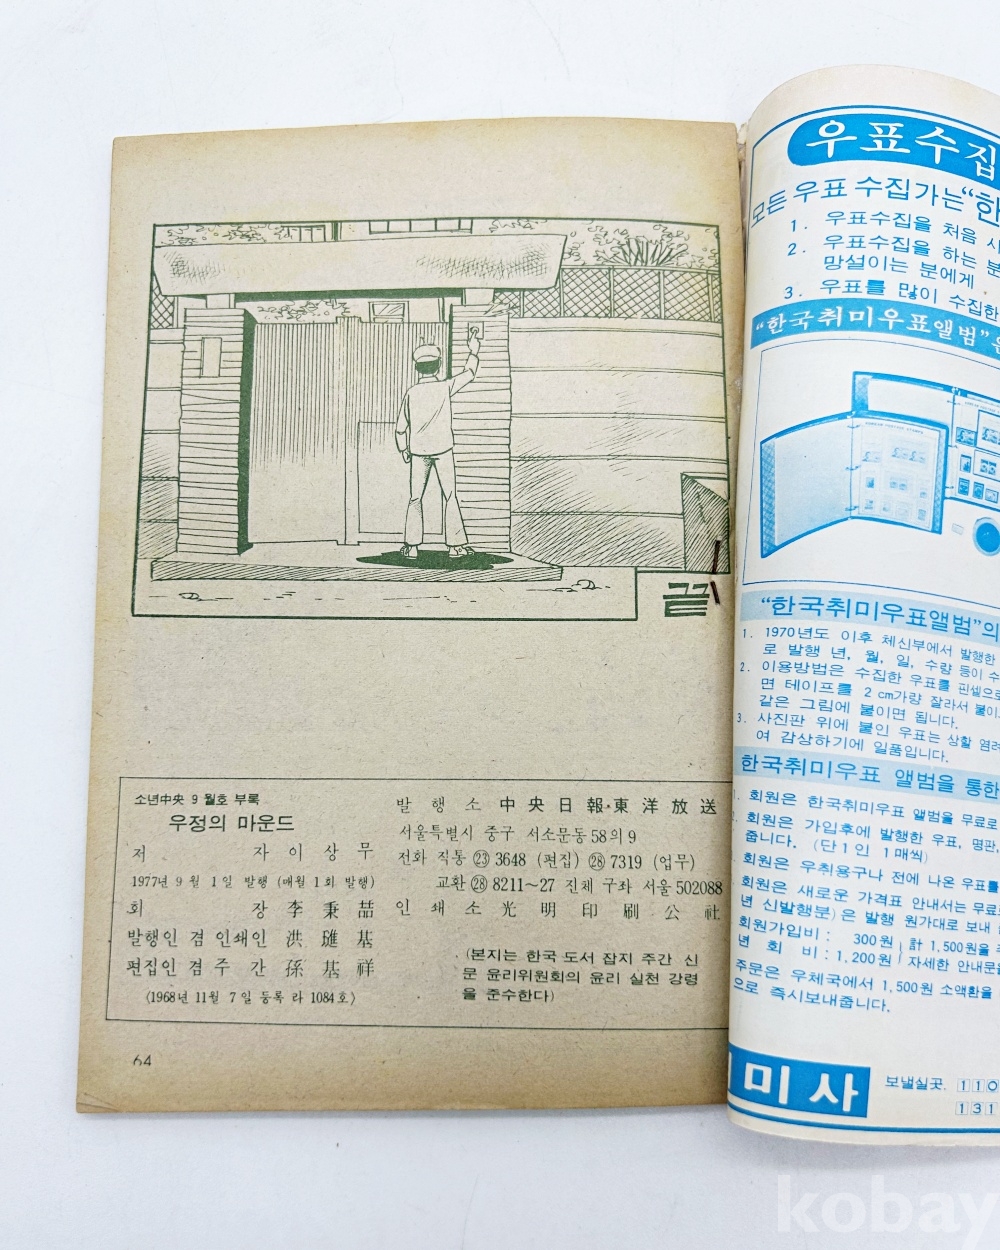 끝
소년中央 9월호 부록
우정의 마운드
저 자 이 상 무
1977년 9월 1일 발행 (매월 1회 발행)
회 장 李 秉 喆
발행인 겸 인쇄인 洪 璡 基
편집인 겸 주 간 孫 基 祥
(1968년 11월 7일 등록 라 1084호)
발 행 소 中央日報・東洋放送
서울특별시 중구 서소문동 58의 9
전화 직통 ㉓ 3648 (편집) ㉘ 7319 (업무)
교환 ㉘ 8211~27 진체 구좌 서울 502088
인 쇄 소 光 明 印 刷 公 社
(본지는 한국 도서 잡지 주간 신
문 윤리위원회의 윤리 실천 강령
을 준수한다)
64
우표수집
모든 우표 수집가는 “한
1. 우표수집을 처음 시
2. 우표수집을 하는 분
망설이는 분에게
3. 우표를 많이 수집한
“한국취미우표앨범”은
“한국취미우표앨범”의
1. 1970년도 이후 체신부에서 발행한
로 발행 년, 월, 일, 수량 등이 수
2. 이용방법은 수집한 우표를 핀셀으로
면 테이프를 2cm가량 잘라서 붙이
같은 그림에 붙이면 됩니다.
3. 사진판 위에 붙인 우표는 상할 염려
여 감상하기에 일품입니다.
한국취미우표 앨범을 통한
1. 회원은 한국취미우표 앨범을 무료로
회원은 가입후에 발행한 우표, 명판,
줍니다. (단 1인 1매씩)
회원은 우취용구나 전에 나온 우표를
회원은 새로운 가격표 안내서는 무료
년 신발행분)은 발행 원가대로 보내
회원가입비 : 300원 計 1,500원을
년 회 비 : 1,200원 자세한 안내문을
주문은 우체국에서 1,500원 소액환을
으로 즉시보내줍니다.
미사
보낼실곳. 110
131
kobay